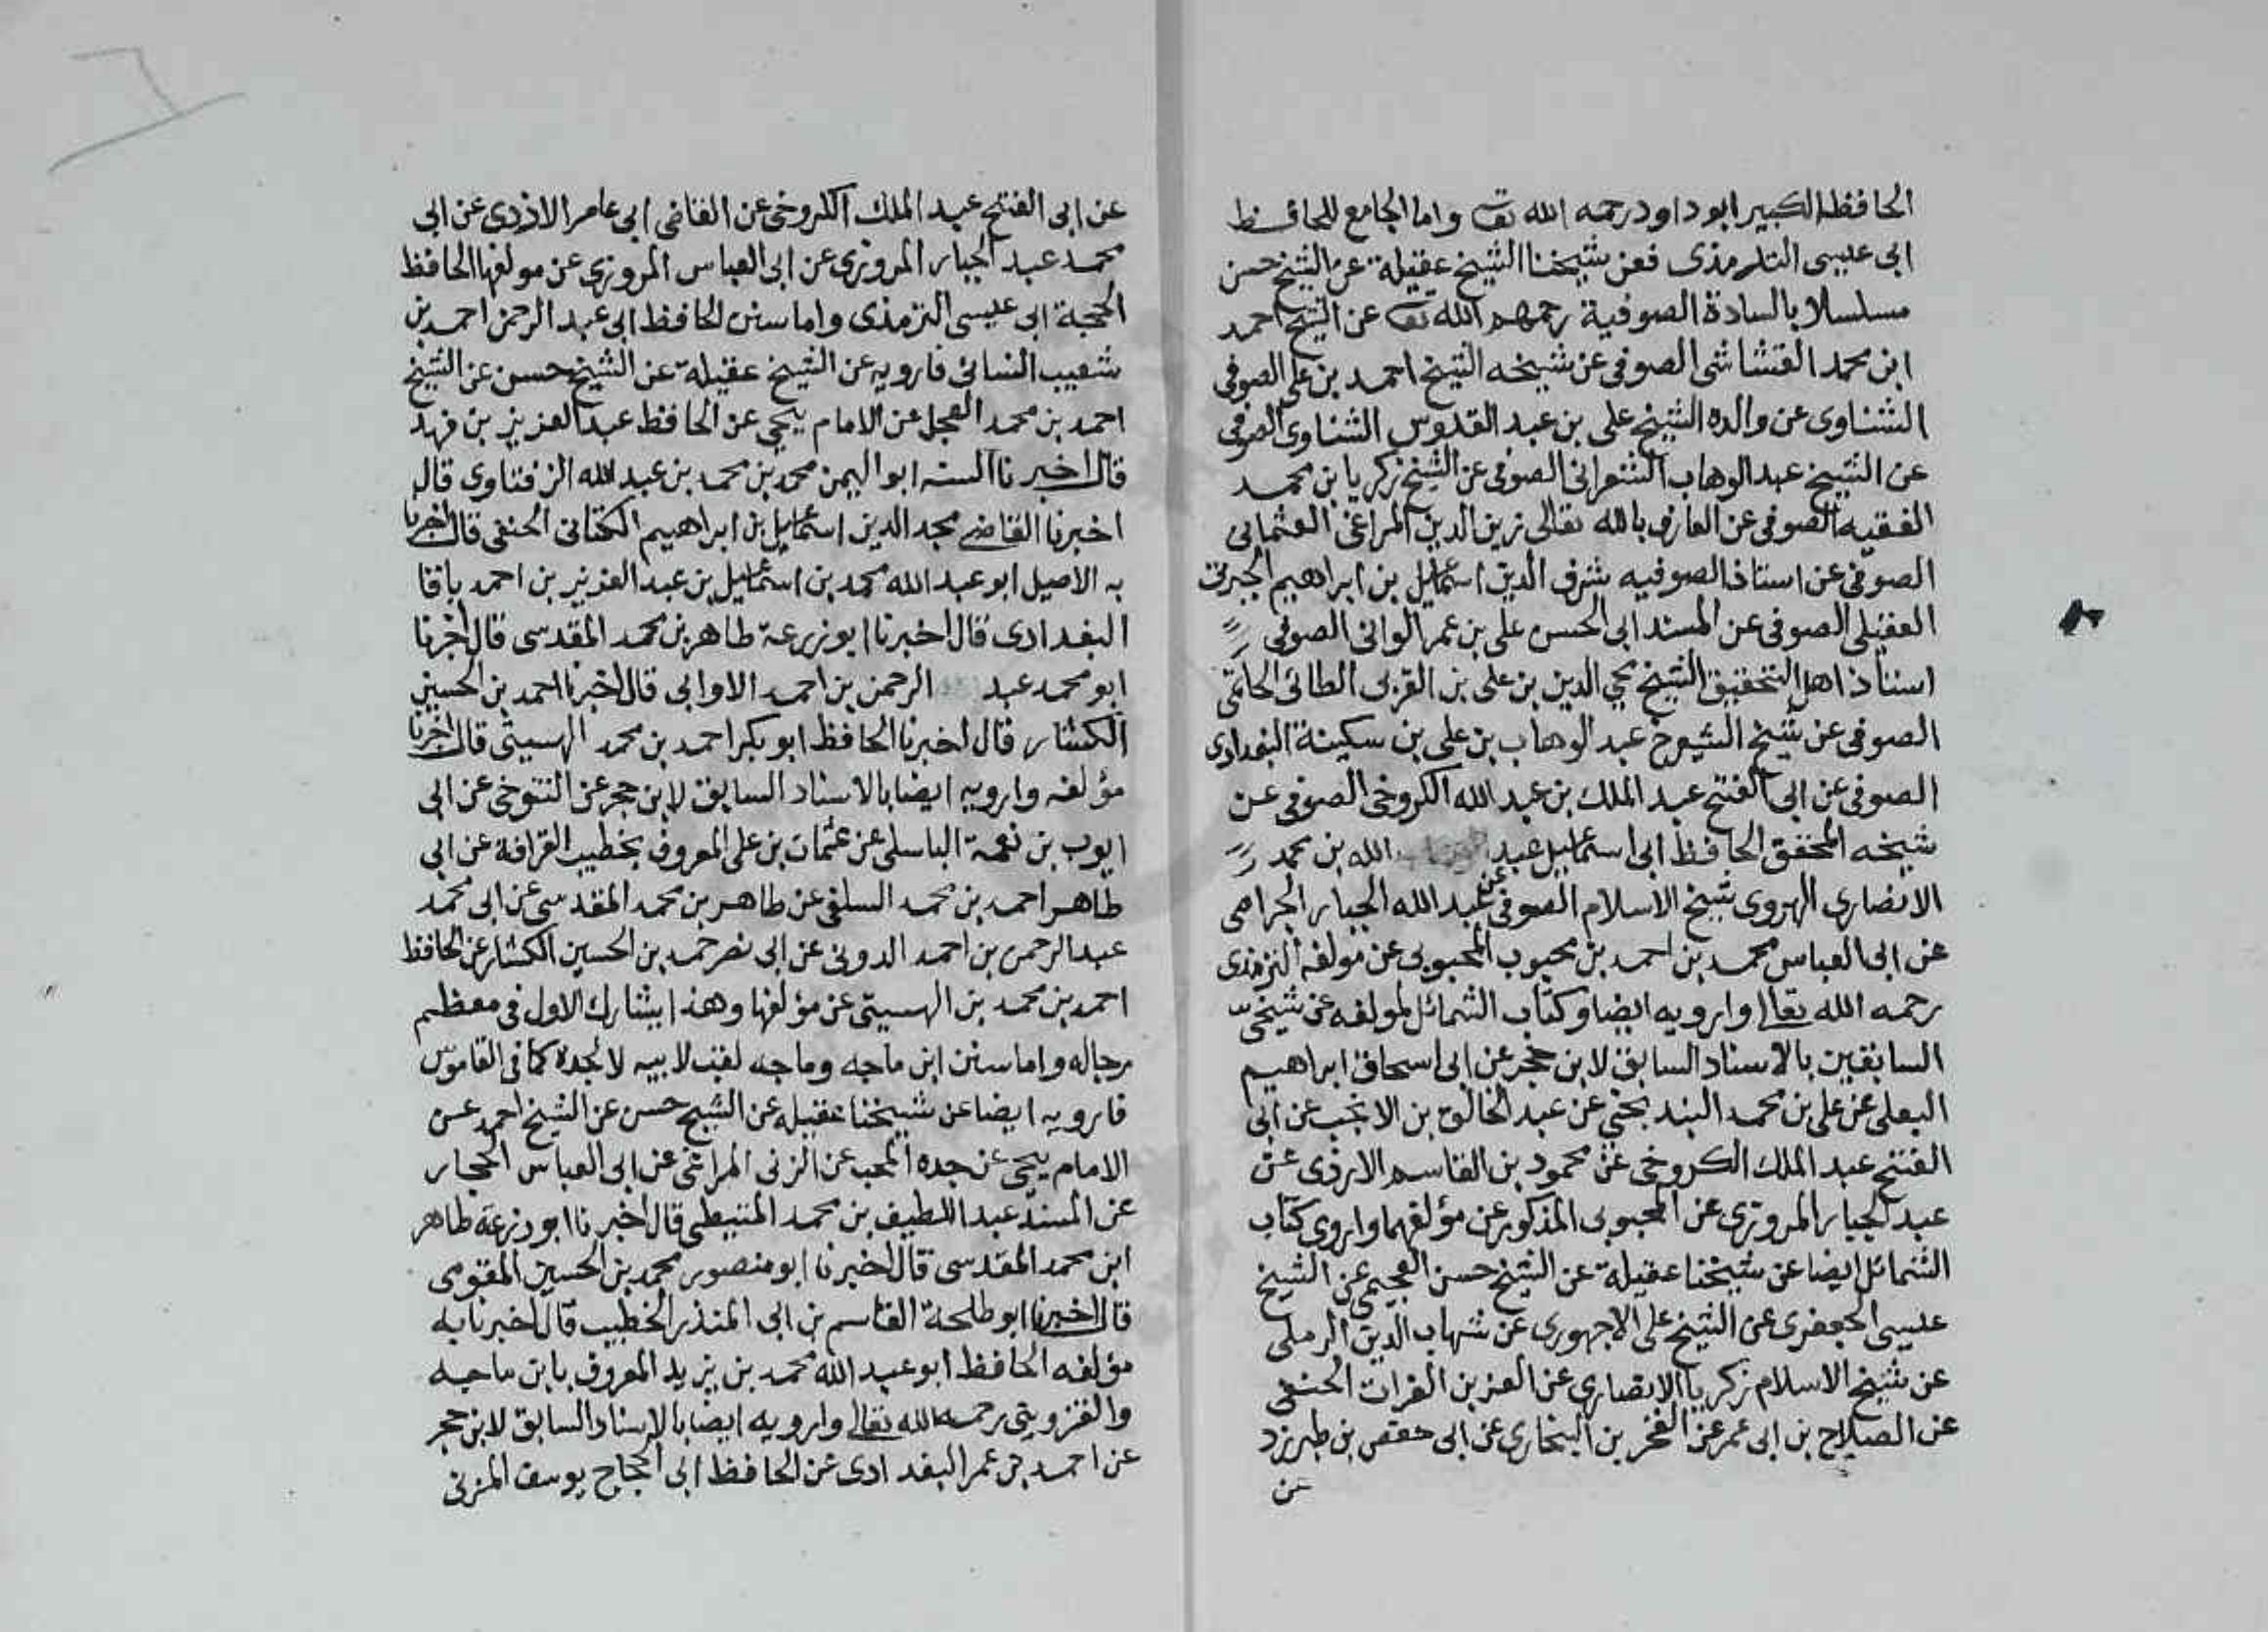 الحافظ الكبير ابو داود رحمه الله تعـ واما الجامع للحافـظ
ابى عيسى التلرمذى فعن شيخنا الشيخ عقيلة عن الشيخ حسن
مسلسلا بالسادة الصوفية رحمهم الله تعـ عن الشيخ احمد
ابن محمد القشاشى الصوفى عن شيخه الشيخ احمد بن على الصوفى
الشناوى عن والده الشيخ على بن عبد القدوس الشناوى الصوفى
عن الشيخ عبد الوهاب الشعرانى الصوفى عن الشيخ زكريا بن محمد
الفقيه الصوفى عن العارف بالله تعالى زين الدين المراغى العثمانى
الصوفى عن استاذ الصوفيه شرف الدين اسماعيل بن ابراهيم الجبرتى
العقيلى الصوفى عن المسند ابى الحسن على بن عمر الوانى الصوفى
استاذ اهل التحقيق الشيخ محى الدين بن على بن العربى الطائى الحاتمى
الصوفى عن شيخ الشيوخ عبد الوهاب بن على بن سكينة البغدادى
الصوفى عن ابى الفتح عبد الملك بن عبد الله الكروخى الصوفى عن
شيخه المحقق الحافظ ابى اسماعيل عبد الله بن محمد
الانصارى الهروى شيخ الاسلام الصوفى عن عبد الله الجبار الجراحى
عن ابى العباس محمد بن احمد بن محبوب المحبوبى عن مولفه الترمذى
رحمه الله تعالى وارويه ايضا وكتاب الشمائل لمولفه عن شيخى
السابقين بالاسناد السابق لابن حجر عن ابى اسحاق ابراهيم
البعلى عن على بن محمد البندنجى عن عبد الخالق بن الانجب عن ابى
الفتح عبد الملك الكروخى عن محمود بن القاسم الازدى عن
عبد الجبار المروزى عن المحبوبى المذكور عن مؤلفهما واروى كتاب
الشمائل ايضا عن شيخنا عقيلة عن الشيخ حسن العجيمى عن الشيخ
عيسى الجعفرى عن الشيخ على الاجهورى عن شهاب الدين الرملى
عن شيخ الاسلام زكريا الانصارى عن العز بن الفرات الحنفى
عن الصلاح بن ابى عمر عن الفخر بن البخارى عن ابى حفص بن طبرزد
عن
عن ابى الفتح عبد الملك الكروخى عن القاضى ابى عامر الازدى عن ابى
محمد عبد الجبار المروزى عن ابى العباس المروزى عن مولفها الحافظ
الحجة ابى عيسى الترمذى واما سنن الحافظ ابى عبد الرحمن احمد بن
شعيب النسائى فارويه عن الشيخ عقيلة عن الشيخ حسن عن الشيخ
احمد بن محمد العجل عن الامام يحيى عن الحافظ عبد العزيز بن فهد
قال اخبرنا السته ابو اليمن محمد بن محمد بن عبد الله الزفتاوى قال
اخبرنا القاضى مجد الدين اسماعيل بن ابراهيم الكنانى الحنفى قال اخبرنا
به الاصيل ابو عبد الله محمد بن اسماعيل بن عبد العزيز بن احمد باقا
البغدادى قال اخبرنا ابو زرعة طاهر بن محمد المقدسى قال اخبرنا
ابو محمد عبد الرحمن بن احمد الاوابى قال اخبرنا احمد بن الحسين
الكشار قال اخبرنا الحافظ ابو بكر احمد بن محمد الهسيتى قال اخبرنا
مؤلفه وارويه ايضا بالاسناد السابق لابن حجر عن التنوخى عن ابى
ايوب بن نعمة الباسلى عن عثمان بن على المعروف بخطيب القرافة عن ابى
طاهر احمد بن محمد السلفى عن طاهر بن محمد المقدسى عن ابى محمد
عبد الرحمن بن احمد الدونى عن ابى نصر حمد بن الحسين الكشار عن الحافظ
احمد بن محمد بن الهسيتى عن مؤلفها وهذا يشارك الاول فى معظم
رجاله واما سنن ابن ماجه وماجه لقب لابيه لا لجده كما فى القاموس
فارويه ايضا عن شيخنا عقيله عن الشيخ حسن عن الشيخ احمد عن
الامام يحيى عن جده المحب عن الزنى المراغى عن ابى العباس الحجار
عن المسند عبد اللطيف بن محمد المتبيطى قال اخبرنا ابو زرعة طاهر
ابن محمد المقدسى قال اخبرنا ابو منصور محمد بن الحسين المقومى
قال اخبرنا ابو طلحة القاسم بن ابى المنذر الخطيب قال اخبرنا به
مؤلفه الحافظ ابو عبد الله محمد بن يزيد المعروف بابن ماجه
والقزوينى رحمه الله تعالى وارويه ايضا بالاسناد السابق لابن حجر
عن احمد بن عمر البغدادى عن الحافظ ابى الحجاج يوسف المزنى